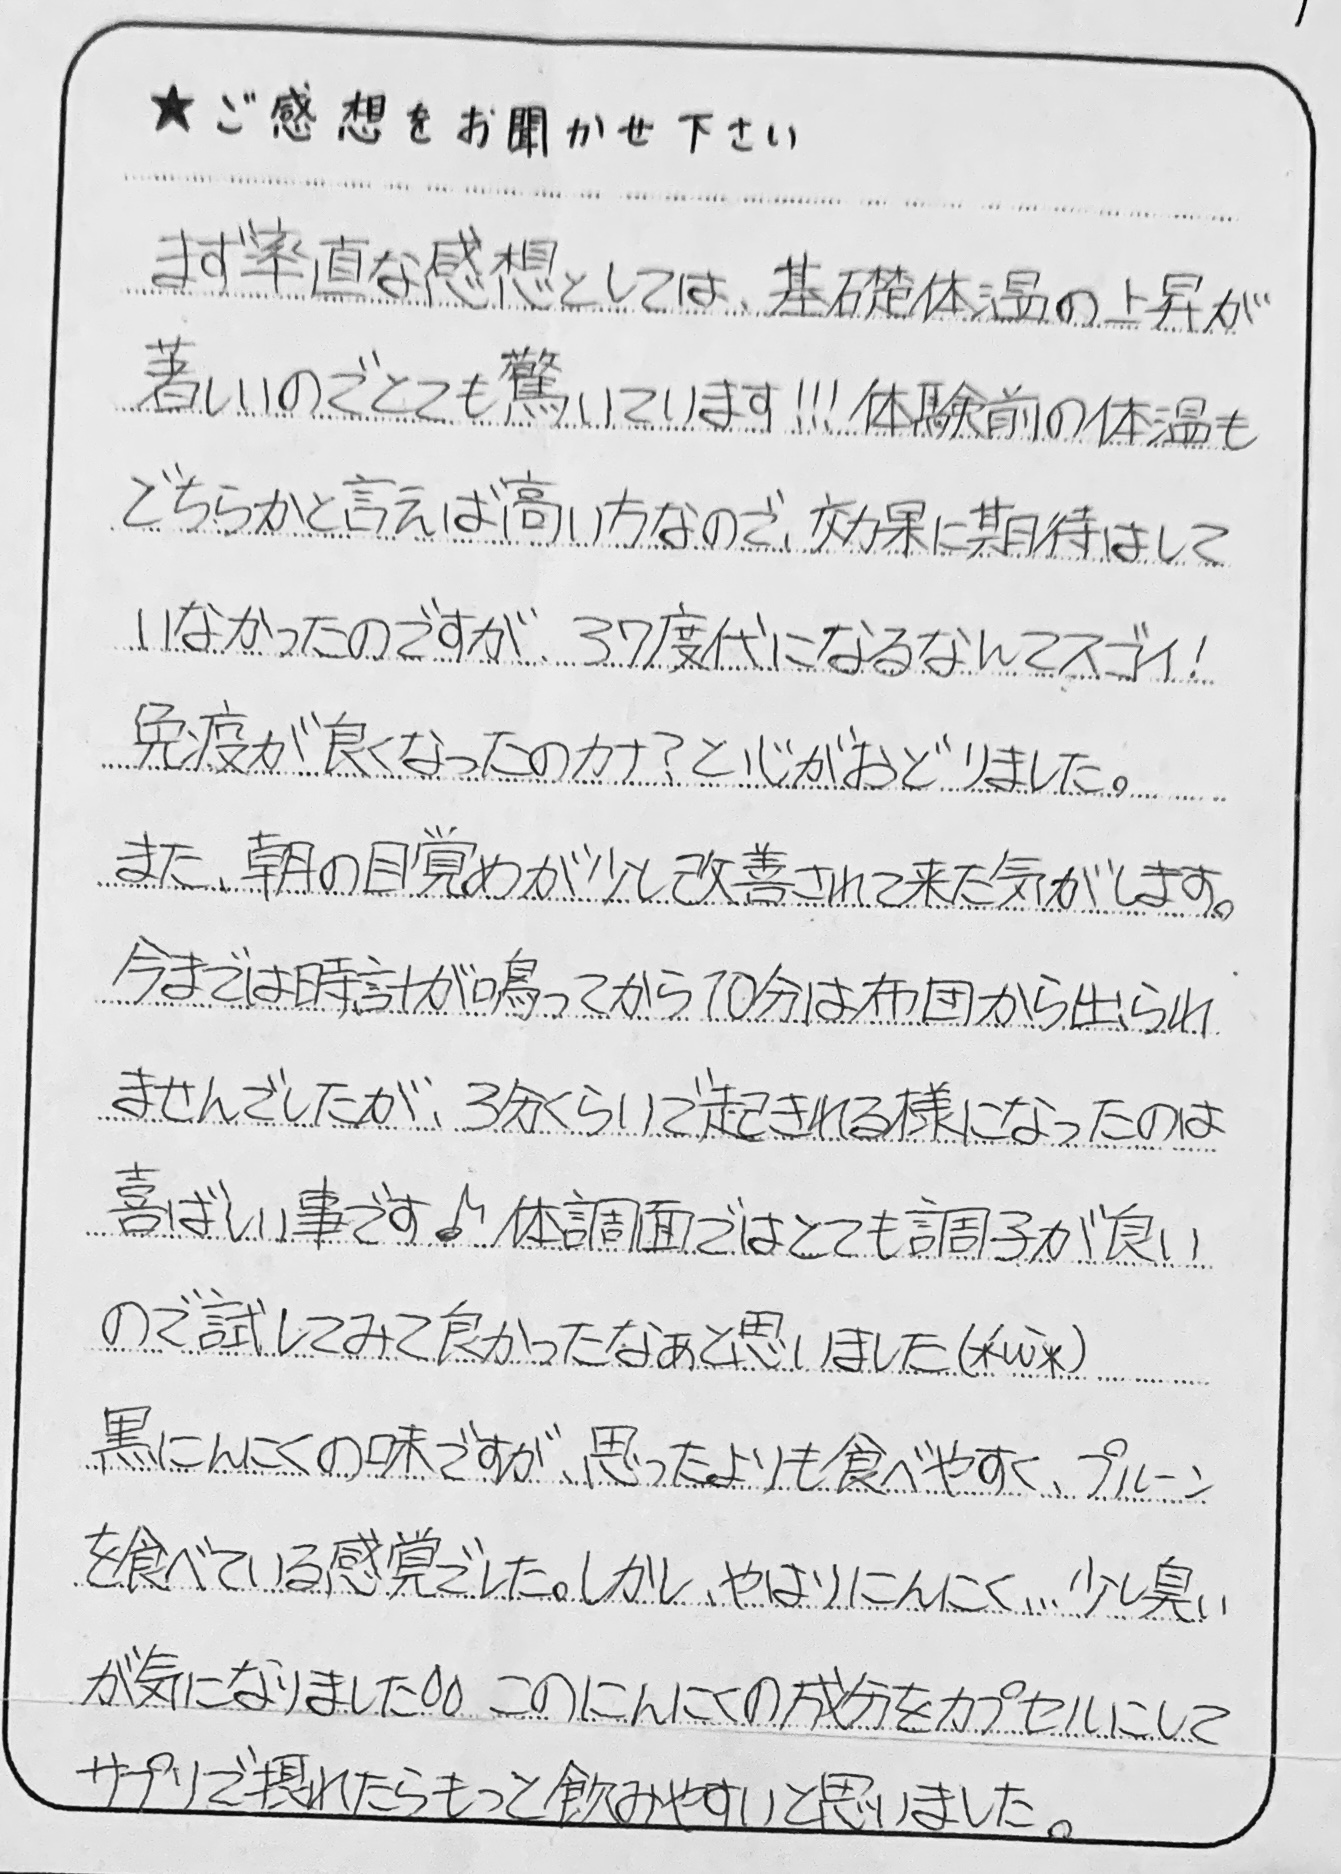 ★ご感想をお聞かせ下さい
まず率直な感想としては、基礎体温の上昇が
著しいのでとても驚いています!!!体験前の体温も
どちらかと言えば高い方なので、効果に期待はして
いなかったのですが、37度代になるなんてスゴイ!
免疫が良くなったのカナ?と心がおどりました。
また、朝の目覚めが少し改善されて来た気がします。
今までは時計が鳴ってから10分は布団から出られ
ませんでしたが、3分くらいで起きれる様になったのは
喜ばしい事です♪ 体調面ではとても調子が良い
ので試してみて良かったなぁと思いました(*^ω^*)
黒にんにくの味ですが、思ったよりも食べやすく、プルーン
を食べている感覚でした。しかし、やはりにんにく…少し臭い
が気になりました00 このにんにくの成分をカプセルにして
サプリで摂れたらもっと飲みやすいと思いました。